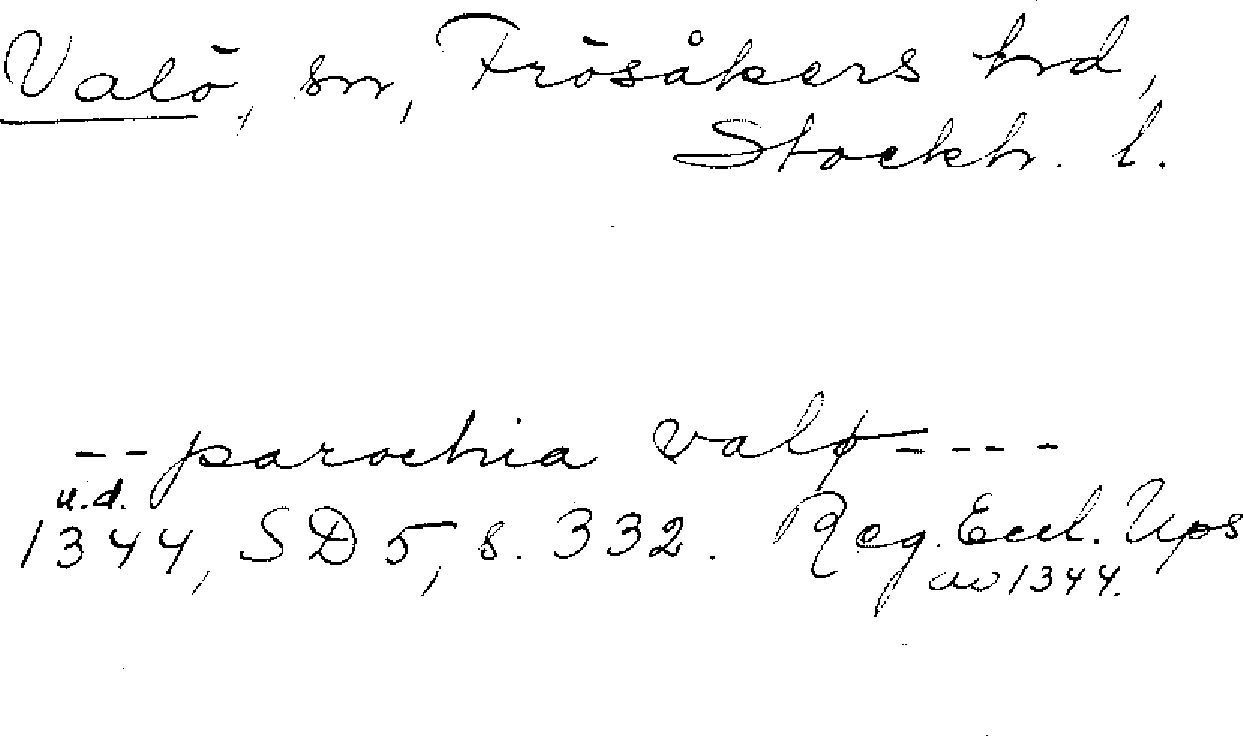 Valö, sn, Frösåkers hrd,
Stockh. l.
-- parochia valø ----
u.d.
1344, SD 5, s. 332. Reg. Eccl. Ups
av 1344.